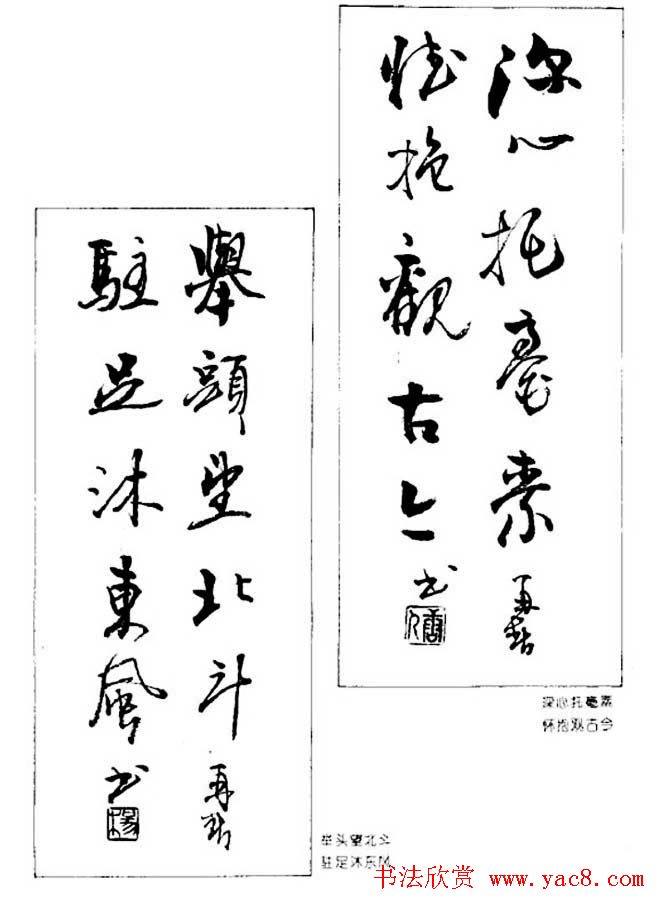 深心托毫素 再春
懷抱觀古今 书
深心托毫素
怀抱观古今
舉頭望北斗 再春
駐足沐東風 书
楊
举头望北斗
驻足沐东风
书法欣赏 www.yac8.com